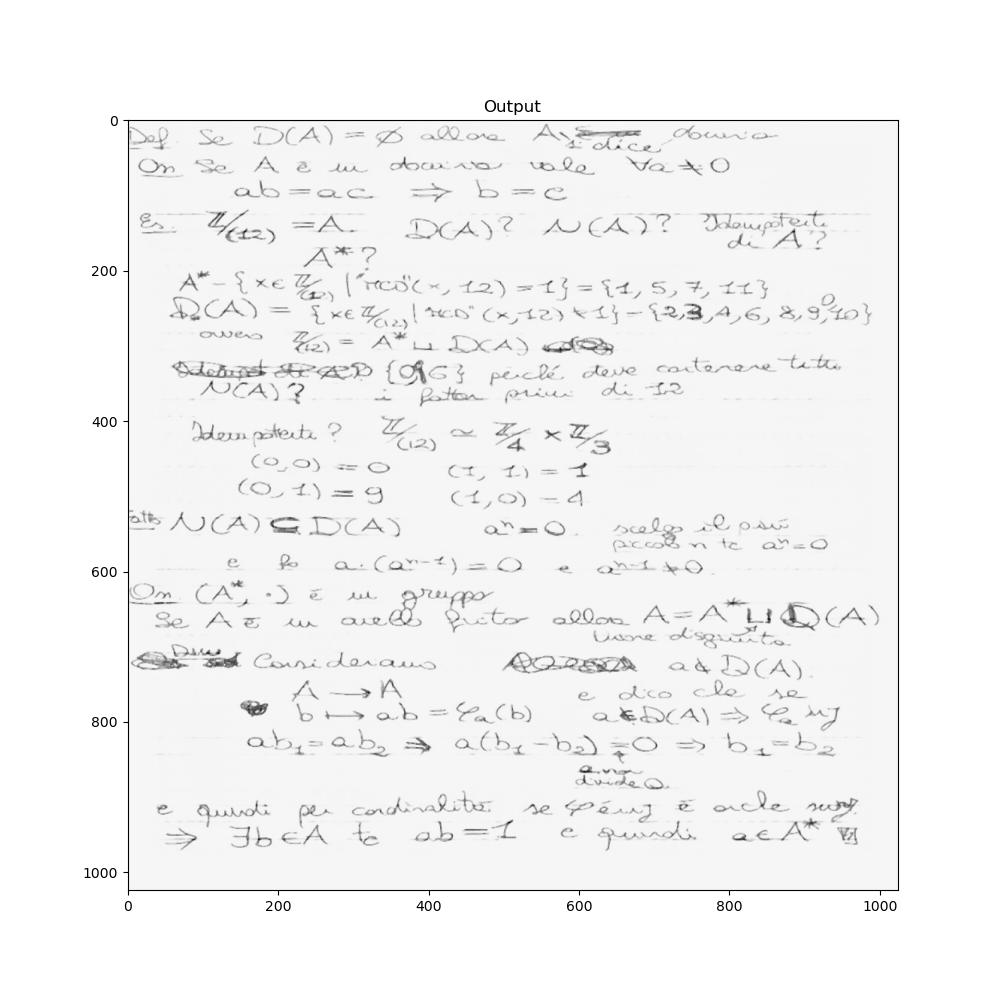 Output
Def. Se D(A) = ∅ allora A si dice dominio
Oss Se A è un dominio vale ∀a ≠ 0
ab = ac ⇒ b = c
Es. ℤ/(12) = A. D(A)? N(A)? Idempotenti di A?
A* ?
A* = {x ∈ ℤ/(12) | "MCD"(x, 12) = 1} = {1, 5, 7, 11}
D(A) = {x ∈ ℤ/(12) | "MCD"(x,12) ≠ 1} = {2,3,4,6,8,9,0,10}
ovvero ℤ/(12) = A* ⊔ D(A)
N(A)? {0,6} perché deve contenere tutti
i fattori primi di 12
Idempotenti? ℤ/(12) ≃ ℤ/4 × ℤ/3
(0,0) = 0 (1,1) = 1
(0,1) = 9 (1,0) = 4
Fatto N(A) ⊆ D(A) aⁿ = 0. scelgo il più
piccolo n tc aⁿ = 0
e fo a·(aⁿ⁻¹) = 0 e aⁿ⁻¹ ≠ 0.
Oss. (A*, ·) è un gruppo
Se A è un anello finito allora A = A* ⊔ D(A)
unione disgiunta
Dim Consideriamo a ∉ D(A).
A → A e dico che se
b ↦ ab = φₐ(b) a ∉ D(A) ⇒ φₐ inj
ab₁ = ab₂ ⇒ a(b₁ − b₂) = 0 ⇒ b₁ = b₂
a non
divide 0.
e quindi per cardinalità se φ è inj è anche surj.
⇒ ∃b ∈ A tc ab = 1 e quindi a ∈ A*
0
200
400
600
800
1000
0 200 400 600 800 1000